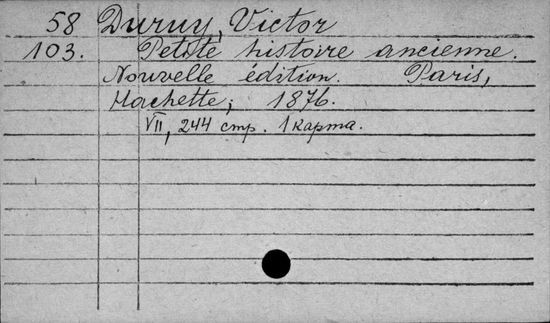 58 Duruy, Victor
103. Petite histoire ancienne.
Nouvelle édition. Paris,
Hachette, 1876.
VII, 244 стр. 1 карта.